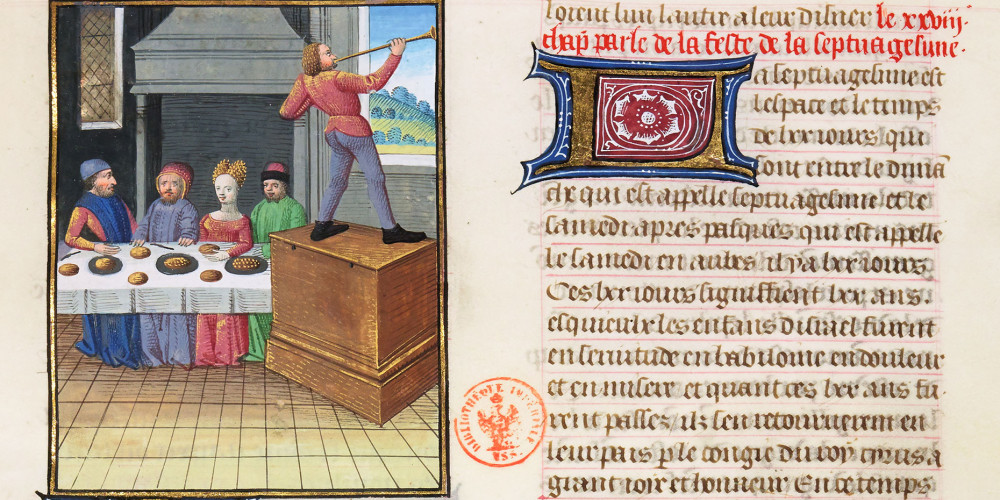 lorent lun lautre a leur disner le xxviij.
chap̄ parle de la feste de la septuagesime.
La septuagesime est
lespace et le temps
de lxx iours qui
sont entre le diman
che qui est appelle septuagesime et le
samedi apres pasques qui est appelle
le samedi en aubes il y a lxx iours
Ces lxx iours signiffient lxx ans.
esquielx les enfans disrael furent
en seruitude en babilonie en douleur
et en misere et quant ces lxx ans fu
rent passes / ilz sen retournerent en
leur pais p̱ le congie du roy cyrus a
grant ioie et honneur En ce temps
BIBLIOTHÈQUE IMPÉRIALE MSS.